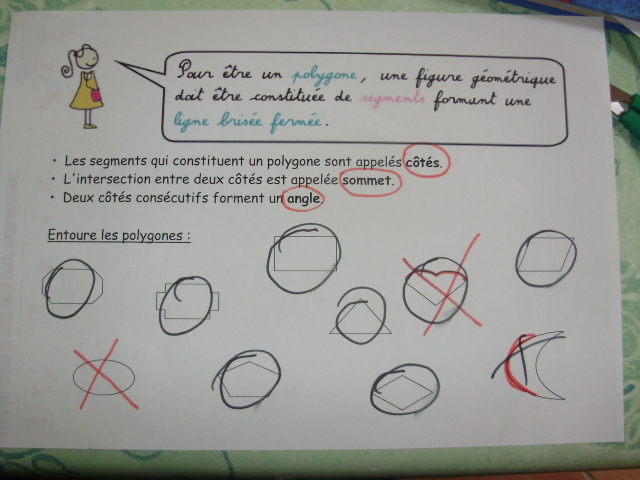 Pour être un polygone, une figure géométrique
doit être constituée de segments formant une
ligne brisée fermée.
· Les segments qui constituent un polygone sont appelés côtés.
· L'intersection entre deux côtés est appelée sommet.
· Deux côtés consécutifs forment un angle.
Entoure les polygones :